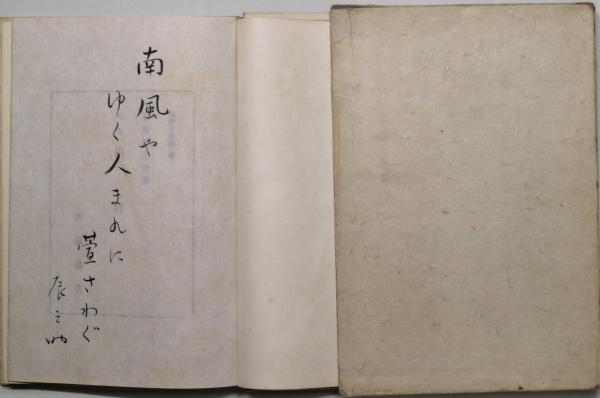 南風や
ゆく人まれに
萱さわぐ
辰之助